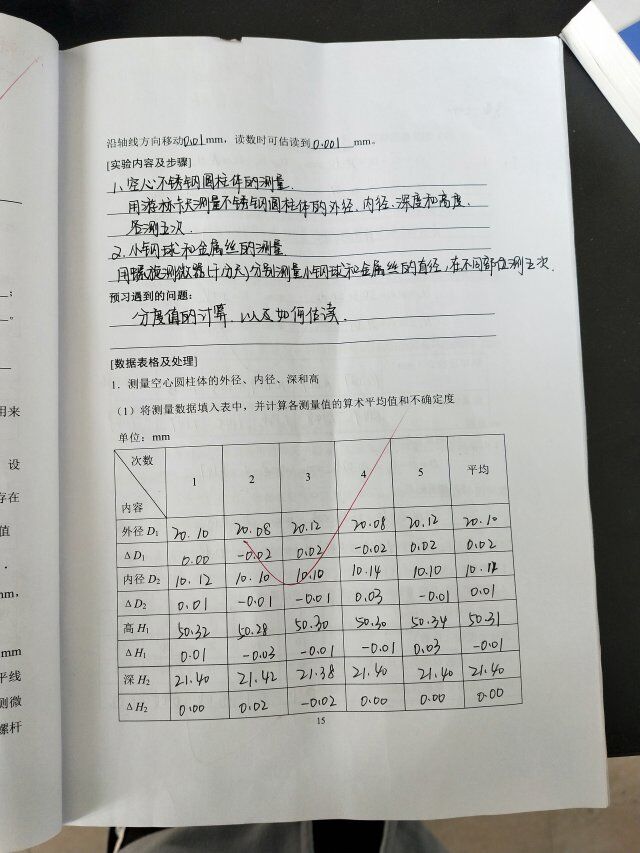 沿轴线方向移动0.01mm，读数时可估读到0.001mm。
[实验内容及步骤]
1、空心不锈钢圆柱体的测量.
用游标卡尺测量不锈钢圆柱体的外径、内径、深度和高度，
各测五次.
2、小钢球和金属丝的测量.
用螺旋测微器(千分尺)分别测量小钢球和金属丝的直径，在不同部位测五次.
预习遇到的问题：
分度值的计算，以及如何估读.
[数据表格及处理]
1．测量空心圆柱体的外径、内径、深和高
（1）将测量数据填入表中，并计算各测量值的算术平均值和不确定度
单位：mm
次数 内容 1 2 3 4 5 平均
外径 D₁ 20.10 20.08 20.12 20.08 20.12 20.10
ΔD₁ 0.00 -0.02 0.02 -0.02 0.02 0.02
内径 D₂ 10.12 10.10 10.10 10.14 10.10
ΔD₂ 0.01 -0.01 -0.01 0.03 -0.01 0.01
高 H₁ 50.32 50.28 50.30 50.30 50.34 50.31
ΔH₁ 0.01 -0.03 -0.01 -0.01 0.03 -0.01
深 H₂ 21.40 21.42 21.38 21.40 21.40 21.40
ΔH₂ 0.00 0.02 -0.02 0.00 0.00 0.00
15
；
。
用来
设
存在
值
.
mm，
mm
平线
测微
螺杆